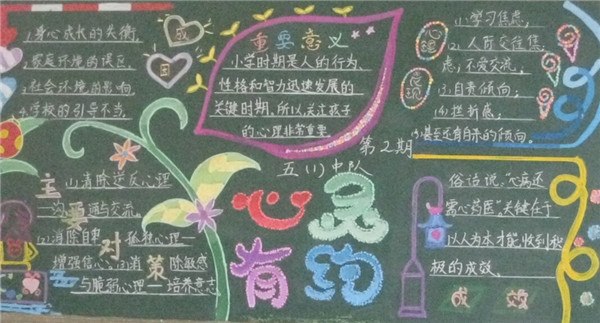 成
因
1.身心成长的失衡,
2.家庭环境的误区,
3.社会环境的影响,
4.学校的引导不当,
重要意义
小学时期是人的行为
性格和智力迅速发展的
关键时期、所以、关注孩子
的心理非常重要
心理
表现
(1)学习焦虑,
(2)人际交往焦
虑,不爱交流,
(3)自责倾向,
(4)挫折感,
(5)甚至还有自杀的倾向.
第2期
五(1)中队
心灵
有约
主要对策
(1)消除逆反心理
沟通与交流,
(2)消除自卑 孤独心理—
增强信心,(3)消除敏感
与脆弱心理—培养意志,
俗话说,"心病还
需心药医",关键在于
以人为本才能收到积
极的成效、
成效